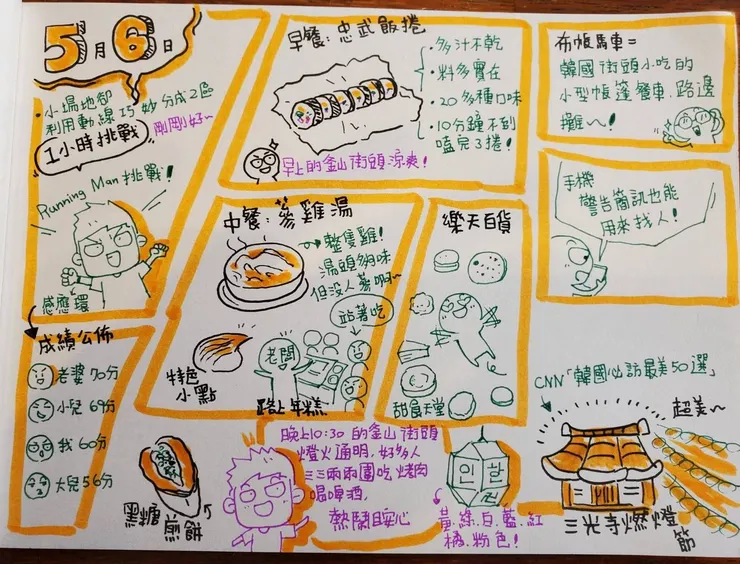 5月6日
・小場地卻
利用動線巧妙分成2區
1小時挑戰
剛剛好~
Running Man 挑戰!
感應環
成績公佈
老婆70分
小兒69分
我60分
大兒56分
早餐:忠武飯捲
・多汁不乾
・料多實在
・20多種口味
・10分鐘不到
嗑完3捲!
早上的釜山街頭涼爽!
布帳馬車=
韓國街頭小吃的
小型帳篷餐車、路邊
攤~!
手機
警告簡訊也能
用來找人!
中餐:蔘雞湯
整隻雞!
湯頭夠味
但沒人蔘啊~
站著吃
特色
小點
老闆
路上年糕
樂天百貨
甜食天堂
CNN「韓國必訪最美50選」
超美~
三光寺燃燈
節
黑糖煎餅
晚上10:30的釜山街頭
燈火通明,好多人
三三兩兩圍吃烤肉
喝啤酒,
熱鬧
黃.綠.白.藍.紅
橘.粉色!